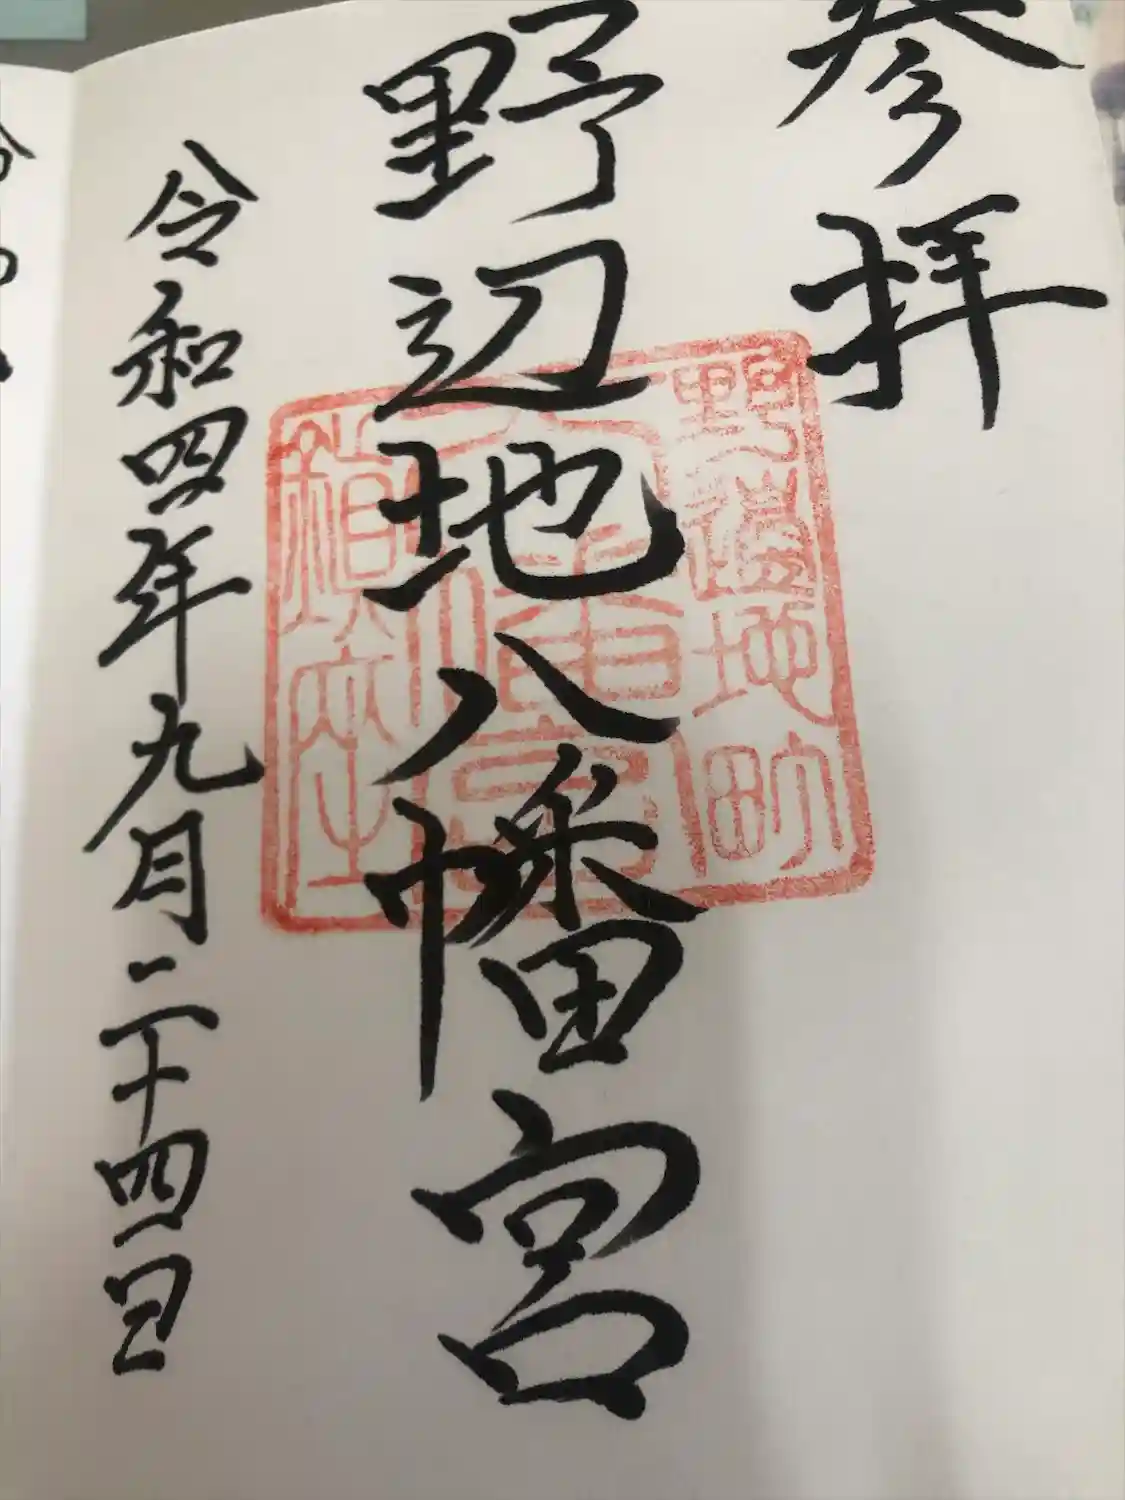 参拝
野辺地八幡宮
令和四年九月二十四日
野邊地町
八幡宮
鎮座